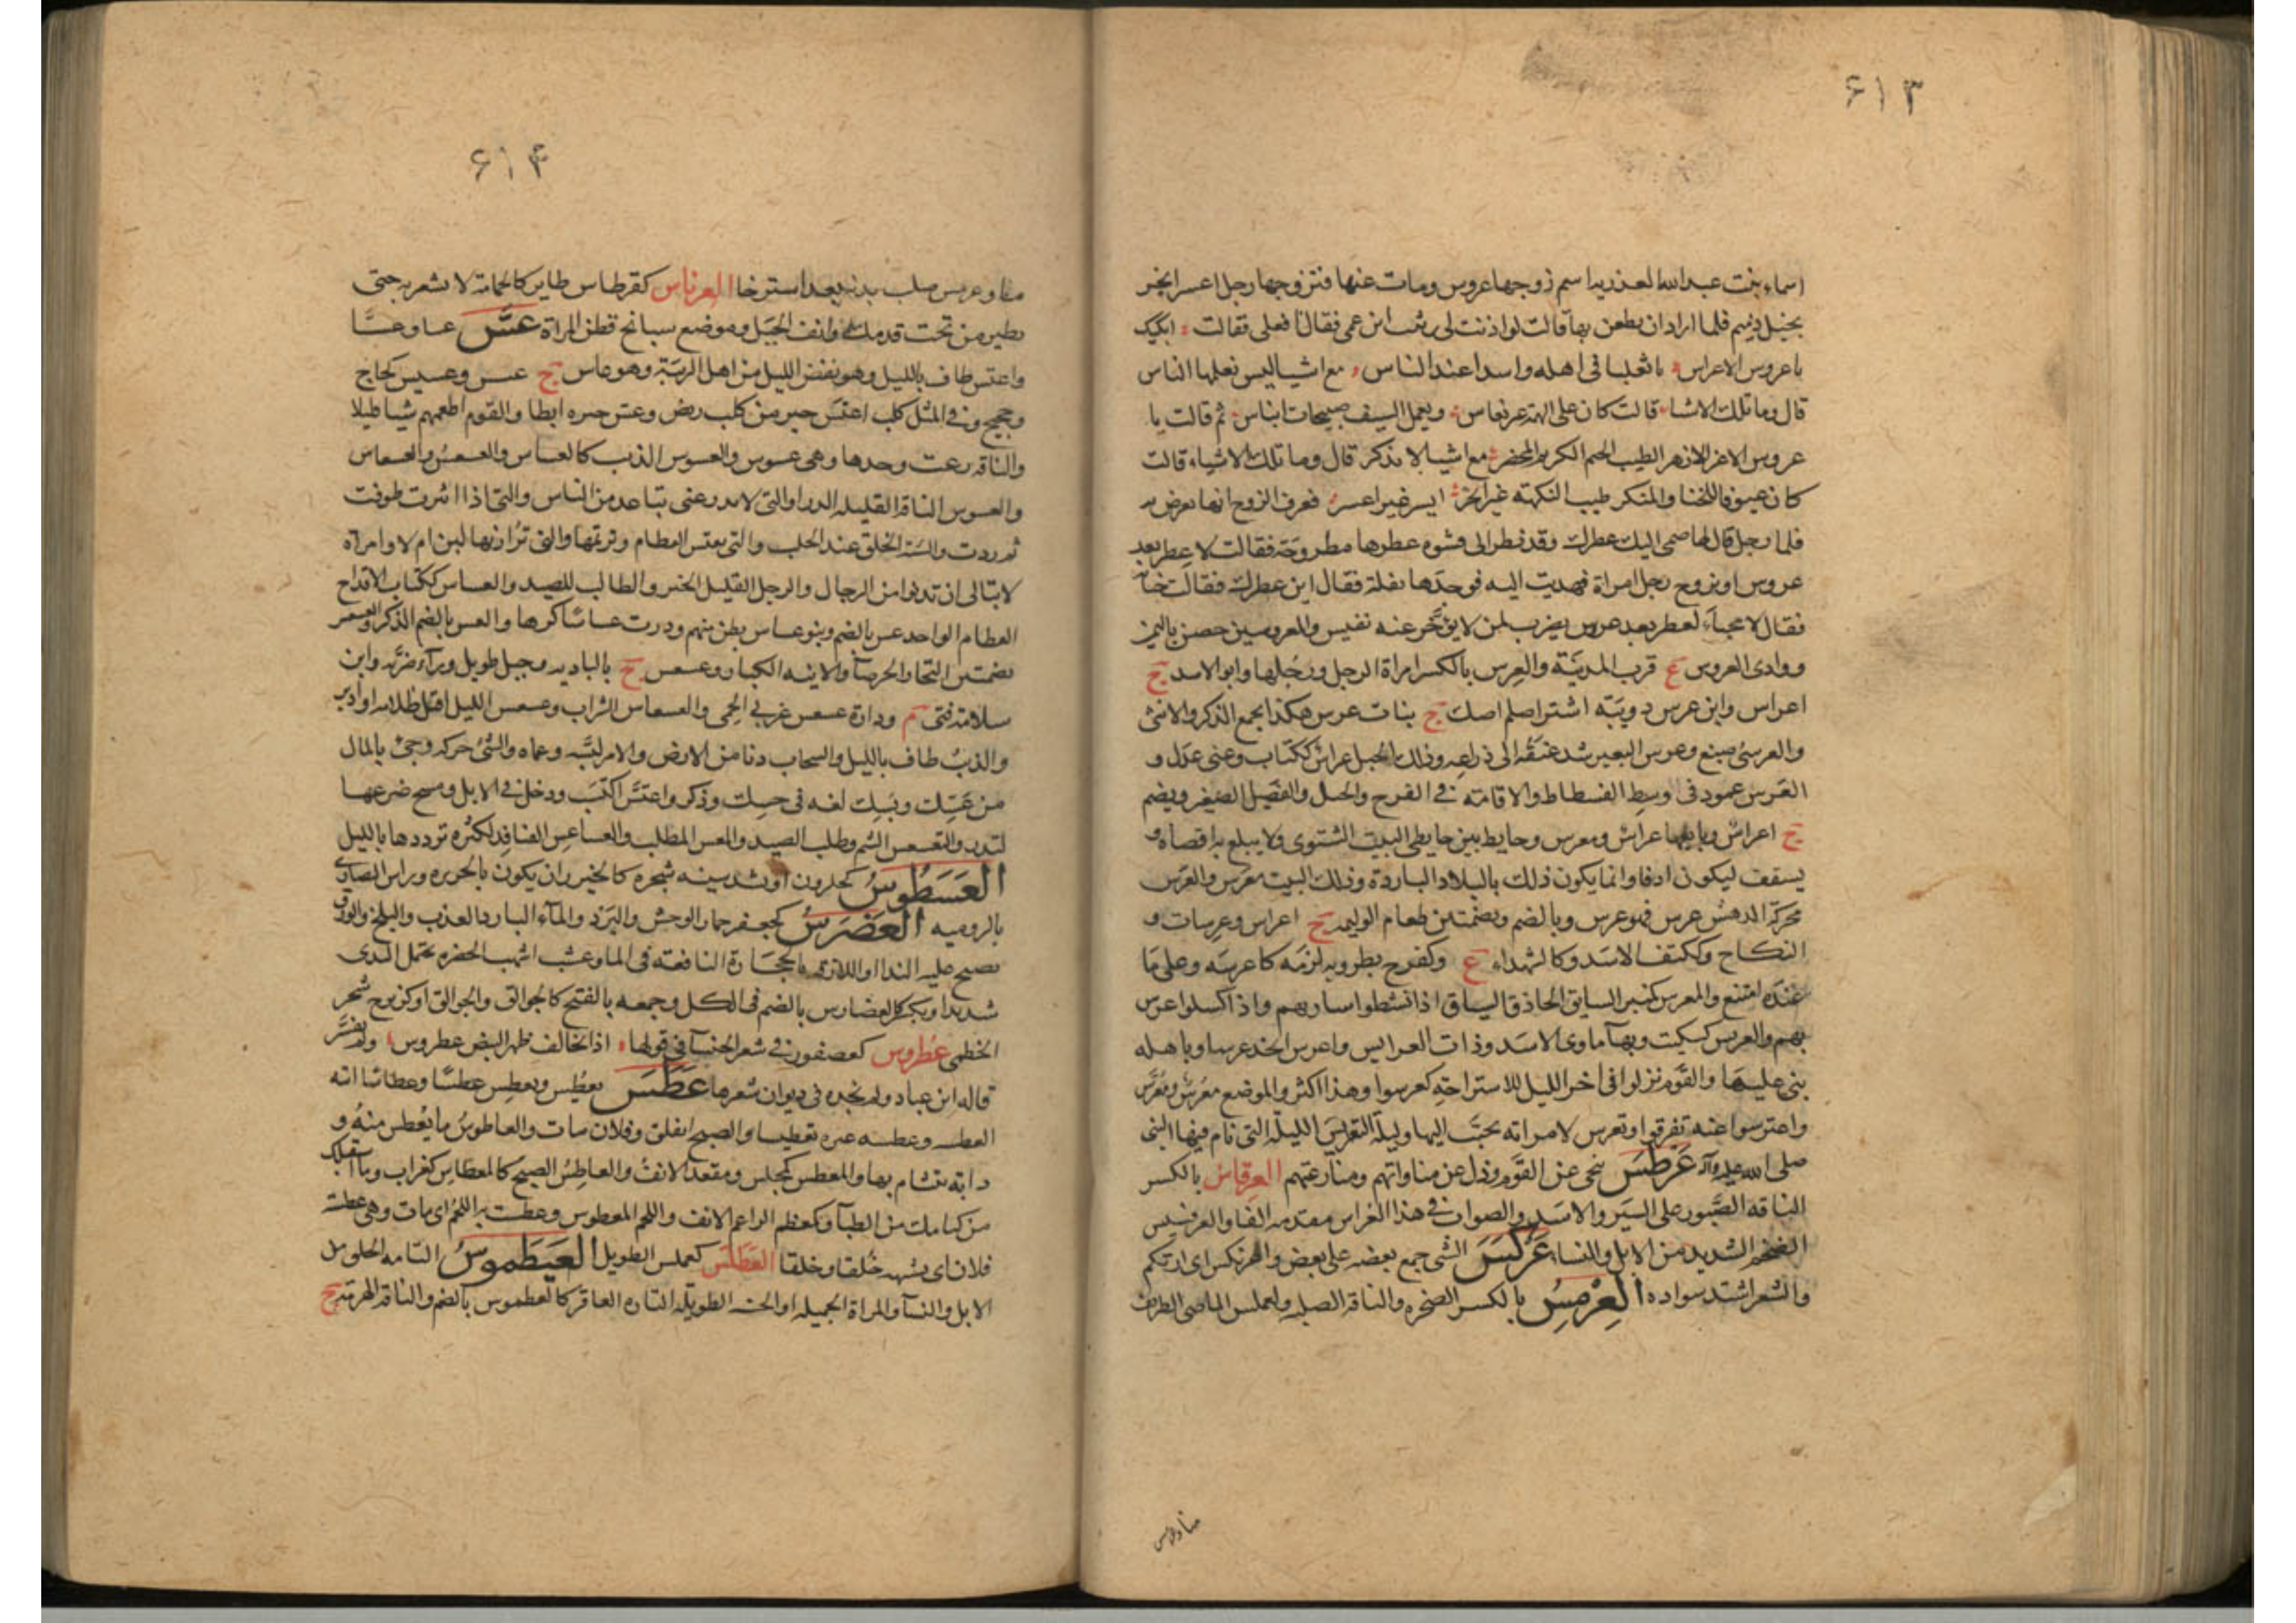 ۶۱۳
اسماء بنت عبد الله العذرية اسم زوجها عروس ومات عنها فتزوجها رجل اعسر ابخر
بخيل دميم فلما اراد ان يظعن بها قالت لو اذنت لى رثيت ابن عمى فقال افعلى فقالت ابكيك
يا عروس الاعراس يا ثعلبا فى اهله واسدا عند الناس مع اشيا ليس تعلمها الناس
قال وما تلك الاشياء قالت كان على الهمة غير نعاس ويعمل السيف صبيحات اناس ثم قالت يا
عروس الاغر الازهر الطيب الخيم الكريم المحضر مع اشيا لا تذكر قال وما تلك الاشياء قالت
كان عيوفا للخنا والمنكر طيب النكهته غير ابخر ايسر غير اعسر فعرف الزوج انها تعرض به
فلما رحل قال لها ضمى اليك عطرك وقد نظر الى قشوة عطرها مطروحة فقالت لا عطر بعد
عروس او تزوج رجل امراة فهديت اليه فوجدها تفلة فقال اين عطرك فقالت خبأته
فقال لا مخبأ لعطر بعد عروس يضرب لمن لا يؤخر عنه نفيس والعروسين حصن باليمن
ووادى العروس ع قرب المدينة والعرس بالكسر امراة الرجل ورجلها وابوة الاسد ج
اعراس وابن عرس دويبة اشتر اصلم اصك ج بنات عرس هكذا يجمع الذكر والانثى
والعرسى صبغ وعرس البعير شد عنقه الى ذراعه وذلك الحبل عراس ككتاب وعنى عدل و
العرس عمود فى وسط الفسطاط والاقامة فى الفرح والحبل والفصيل الصغير ويضم
ج اعراس وبايعها عراس ومعرس وحايط بين حايطى البيت الشتوى ولا يبلغ به اقصاه و
يسقف ليكون ادفا وانما يكون ذلك بالبلاد الباردة وذلك البيت معرس والعرس
محركة الدهش عرس فهو عرس وبالضم وبضمتين طعام الوليمه ج اعراس وعرسات و
النكاح وككتف الاسد وكالشهداء ع وكفرح بطر وبه لزمه كاعرسه وعلى ما
عنده امتنع والمعرس كمنبر السايق الحاذق السياق اذا نشطوا سار بهم واذا اكسلوا عرس
بهم والعريس كسكيت وبهآ ماوى الاسد وذات العرايس واعرس اتخذ عرسا وباهله
بنى عليها والقوم نزلوا فى اخر الليل للاستراحة كعرسوا وهذا اكثر والموضع معرس ومعرس
واعترسوا عنه تفرقوا وتعرس لامراته تحبب اليها وليلة التعريس الليلة التى نام فيها النبى
صلى الله عليه وآله عرطس تنحى عن القوم وذل عن مناواتهم ومنازعتهم العرفاس بالكسر
الناقه الصبور على السير والاسد والصواب فى هذا العفراس مقدمة الفا والعرفسيس
الضخم الشديد من الابل والنساء عركس الشى جمع بعضه على بعض واعرنكس اى ارتكم
والشعر اشتد سواده العرمس بالكسر الصخره والناقة الصلبه ولعملس الماضى الظريف
منا وعرمس
۶۱۴
منا وعرمس صلب بدنه بعد استرخا العرناس كقرطاس طاير كالحمامة لا تشعر به حتى
يطير من تحت قدمك وانف الجبل وموضع سبائخ قطن المراة عس عسا وعسسا
واعتس طاف بالليل وهو نفض الليل من اهل الريبة وهو عاس ج عسس وعسيس كحاج
وحجيج وفى المثل كلب اعتس خير من كلب ربض وعس خبره ابطا والقوم اطعمهم شيا قليلا
والناقه رعت وحدها وهى عسوس والعسوس الذيب كالعساس والعسعس والعسعاس
والعسوس الناقة القليله الدر او التى لا تدر حتى تباعد من الناس والتى اذا اثيرت طوفت
ثم درت والسيئة الخلق عند الحلب والتى تعتس العظام وترتمها والتى تراز بها لبن ام لا وامراة
لا تبالى ان تدنوا من الرجال والرجل القليل الخير والطالب للصيد والعساس ككتاب الاقداح
العظام الواحد عس بالضم وبنو عساس بطن منهم ودرت عساسا كرها والعس بالضم الذكر والعسس
بضمتين التجار والحرصآ والانيه الكبار وعسعس ع بالبادية وجبل طويل ورآء ضرية وابن
سلامة فتى م ودارة عسعس غربى الحمى والعسعاس السراب وعسعس الليل اقبل ظلامه او ادبر
والذئب طاف بالليل والسحاب دنا من الارض والامر لبسه وعماه والشى حركه وجئ بالمال
من عسك وبسك لغه فى حسك وذكر واعتس اكتسب ودخل فى الابل ومسح ضرعها
لتدر والتعسعس الشم وطلب الصيد والمعس المطلب والعساعس القنافذ لكثرة ترددها بالليل
العسطوس كحلزون او تشدد سينه شجرة كالخيزران يكون بالجزيره وراس النصارى
بالروميه العضرس كجعفر حمار الوحش والبرد والمآء البارد العذب والثلج والورق
يصبح عليه الندا او اللازقه بالحجارة الناقعة فى الما وعشب اشهب الخضره يحتمل الندى
شديدا ويكسر كالعضارس بالضم فى الكل وجمعه بالفتح كالجوالق والجوالق او كزبرج شجر
الخطمى عطروس كعصفور فى شعر الخنسآ فى قولها اذا تخالف ظهر البيض عطروس ولم يفسر
قاله ابن عباد ولم نجده فى ديوان شعرها عطس يعطس ويعطس عطسا وعطاسا اتته
العطسه وعطسه غيره تعطيسا والصبح انفلق وفلان مات والعاطوس ما يعطس منه و
دابه يتشام بها والمعطس كمجلس ومقعد الانف والعاطس الصبح كالعطاس كغراب وما استقبلك
من امامك من الظبآ وكمعظم الراغم الانف واللجم المعطوس وعطست به اللجم اى مات وهى عطسة
فلان اى يشبهه خلقا وخلقا العطلس كعملس الطويل العيطموس التامه الخلق من
الابل والنسآ والمراة الجميله او الحسنه الطويلة التاره العاقر كالعطموس بالضم والناقة الهرمة ج